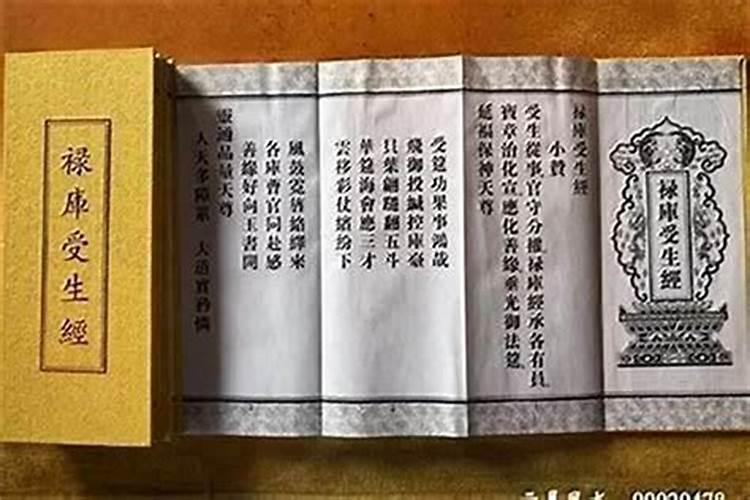 禄庫受生經
禄庫受生經
禄庫受生經
小贊
受生從事官守分權禄庫經承各有員
寶章治化宣應化善緣垂光御法筵
延福保神天尊
受筵功果事鴻哉
飛御投緘控庫臺
貝葉翩翻五斗
華筵海會應三才
雲移彩仗繽紛下
風鼓霓旌絡繹來
各庫曹官同赴感
善緣好向玉書開
靈通品量天尊
人天多障業 大道實矜憐
99029478